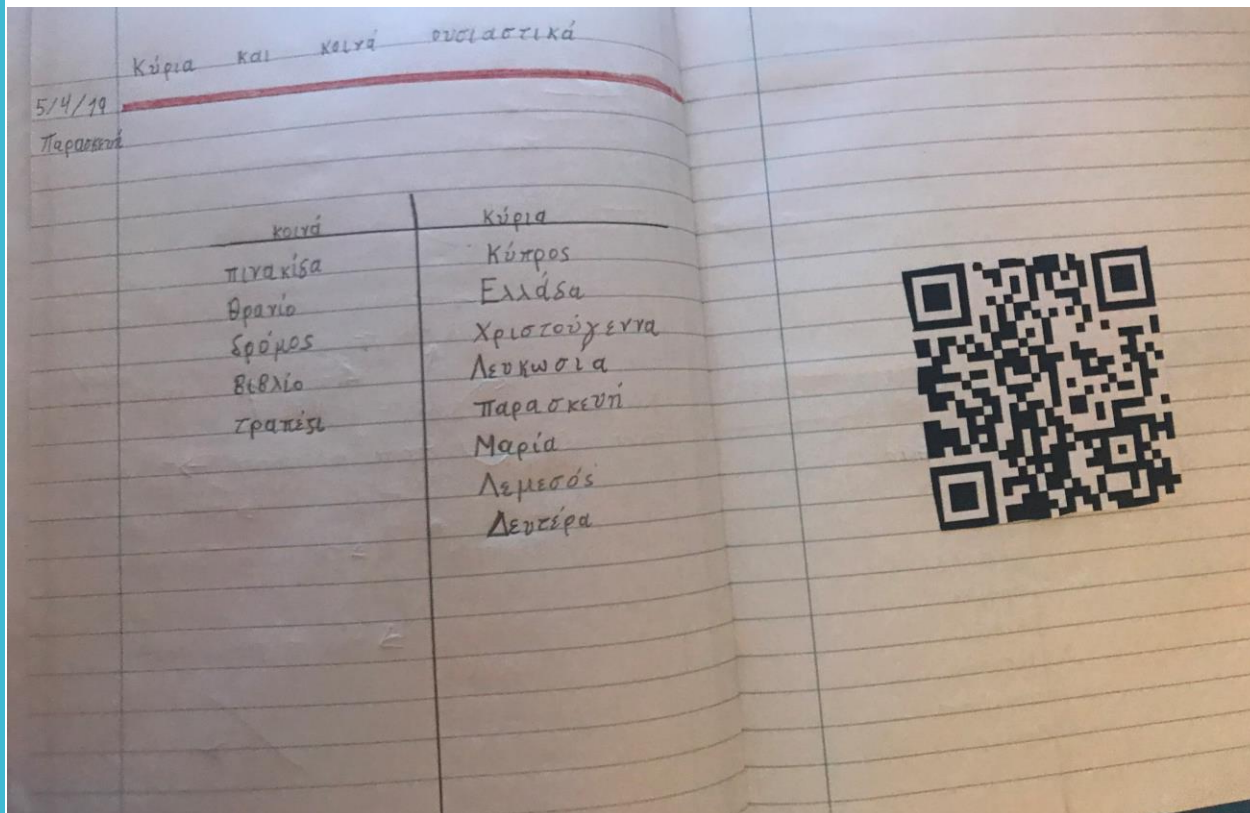 Κύρια και κοινά ουσιαστικά
5/4/19
Παρασκευή
κοινά Κύρια
πινακίδα Κύπρος
θρανίο Ελλάδα
δρόμος Χριστούγεννα
βιβλίο Λευκωσια
τραπέζι Παρασκευή
Μαρία
Λεμεσός
Δευτέρα